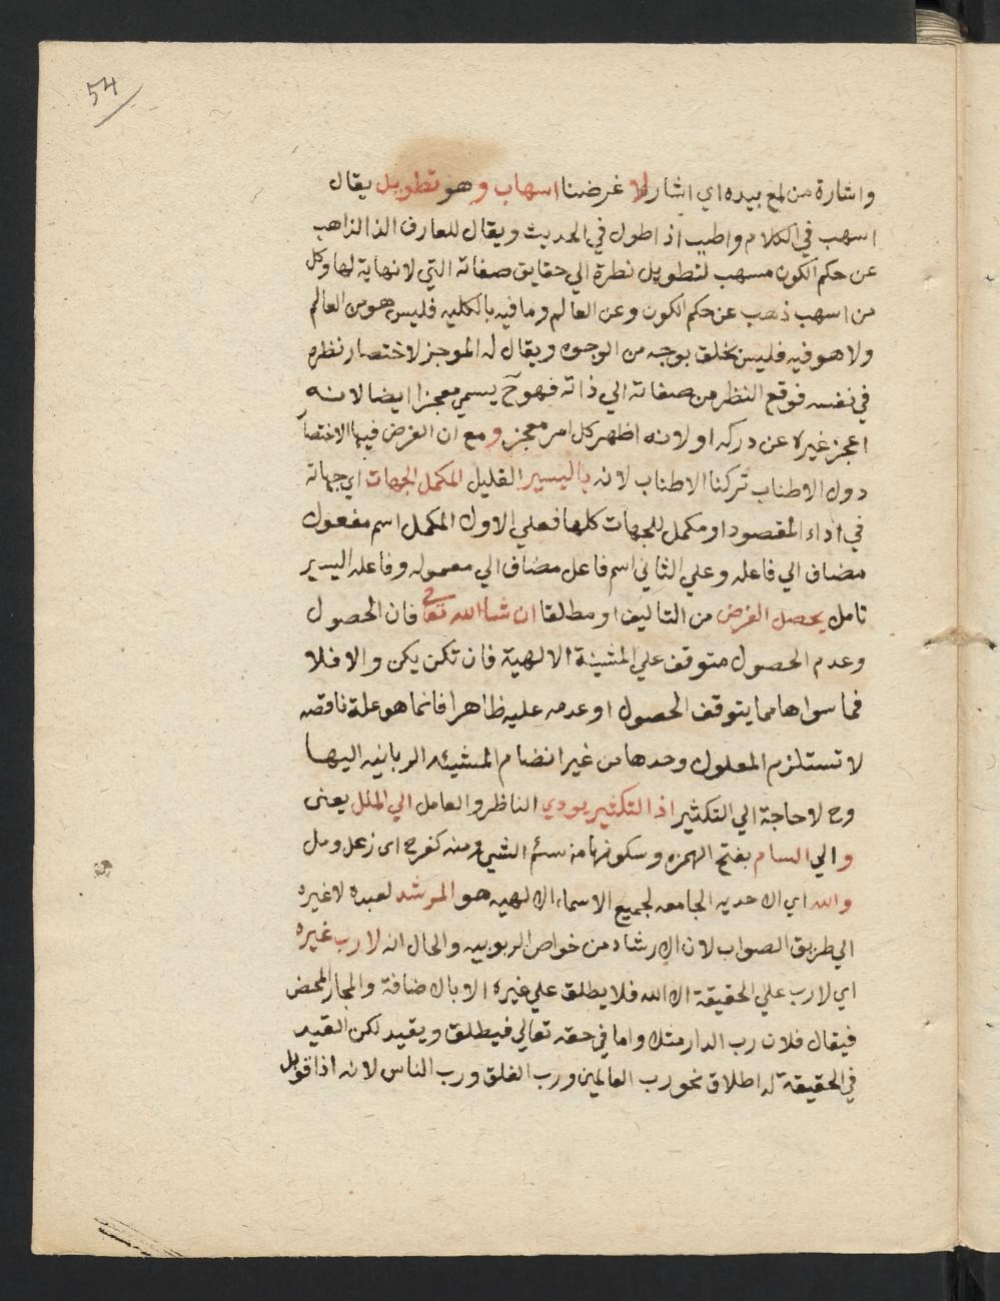 54
واشارة من لمع بيده اي اشار لا غرضنا اسهاب وهو تطويل يقال
اسهب في الكلام واطيب اذ اطول في الحديث ويقال للعارف الذ الزاهب
عن حكم الكون مسهب لتطويل نطرة الي حقايق صفاته التي لا نهاية لها وكل
من اسهب ذهب عن حكم الكون وعن العالم وما فيه بالكليه فليس هو من العالم
ولا هو فيه فليس بخلق بوجه من الوجوه ويقال له الموجز لاختصار نظره
في نفسه فوقع النظر من صفاته الي ذاته فهو ح يسمي معجزا ايضا لانه
اعجز غيره عن دركه او لانه اظهر كل امر معجز ومع ان الغرض فيها الاختصا
دون الاطناب تركنا الاطناب لانه باليسير القليل المكمل الجهات اي جهاته
في اداء المقصود او مكمل للجهات كلها فعلي الاول المكمل اسم مفعول
مضاف الي فاعله وعلي الثاني اسم فاعل مضاف الي معموله وفاعله اليسير
تامل يحصل الغرض من التاليف او مطلقا ان شا الله تعالى فان الحصول
وعدم الحصول متوقف علي المشيئة الالهية فان تكن يكن والا فلا
فما سواها مما يتوقف الحصول او عدمه عليه ظاهرا فانما هو علة ناقصه
لا تستلزم المعلول وحدها من غير انضام المشيئه الربانيه اليها
وح لا حاجة الي التكثير اذ التكثير يودي الناظر والعامل الي الملل يعنى
والي السام بفتح الهمزه وسكونها من سئم الشيئ ومنه كفرح اى زعل ومل
والله اي الاحديه الجامعه لجميع الاسماء الالهيه هو المرشد لعبده لا غيره
الي طريق الصواب لان الارشاد من خواص الربوبيه والحال انه لا رب غيره
اي لا رب علي الحقيقة الا الله فلا يطلق علي غيره الا بالاضافة والمجاز المحض
فيقال فلان رب الدار مثلا واما في حقه تعالي فيطلق ويقيد لكن القيد
في الحقيقة له اطلاق نحو رب العالمين ورب الفلق ورب الناس لانه اذا قوبل